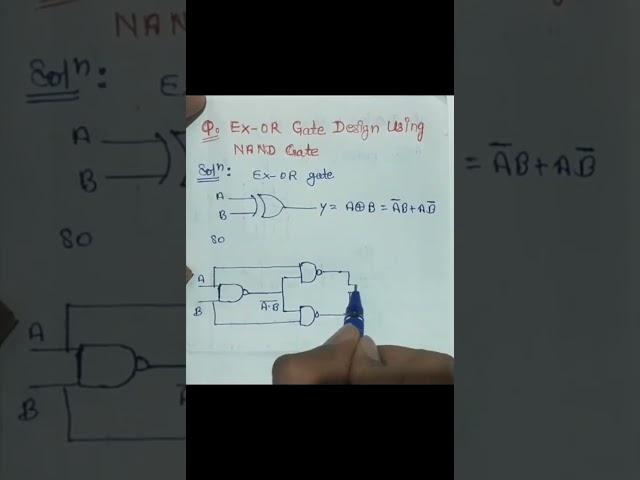 Q. Ex-OR Gate Design Using
NAND Gate
Solⁿ: Ex-OR gate
A
B
Y = A⊕B = A̅B + AB̅
So
A
B
\overline{A·B}